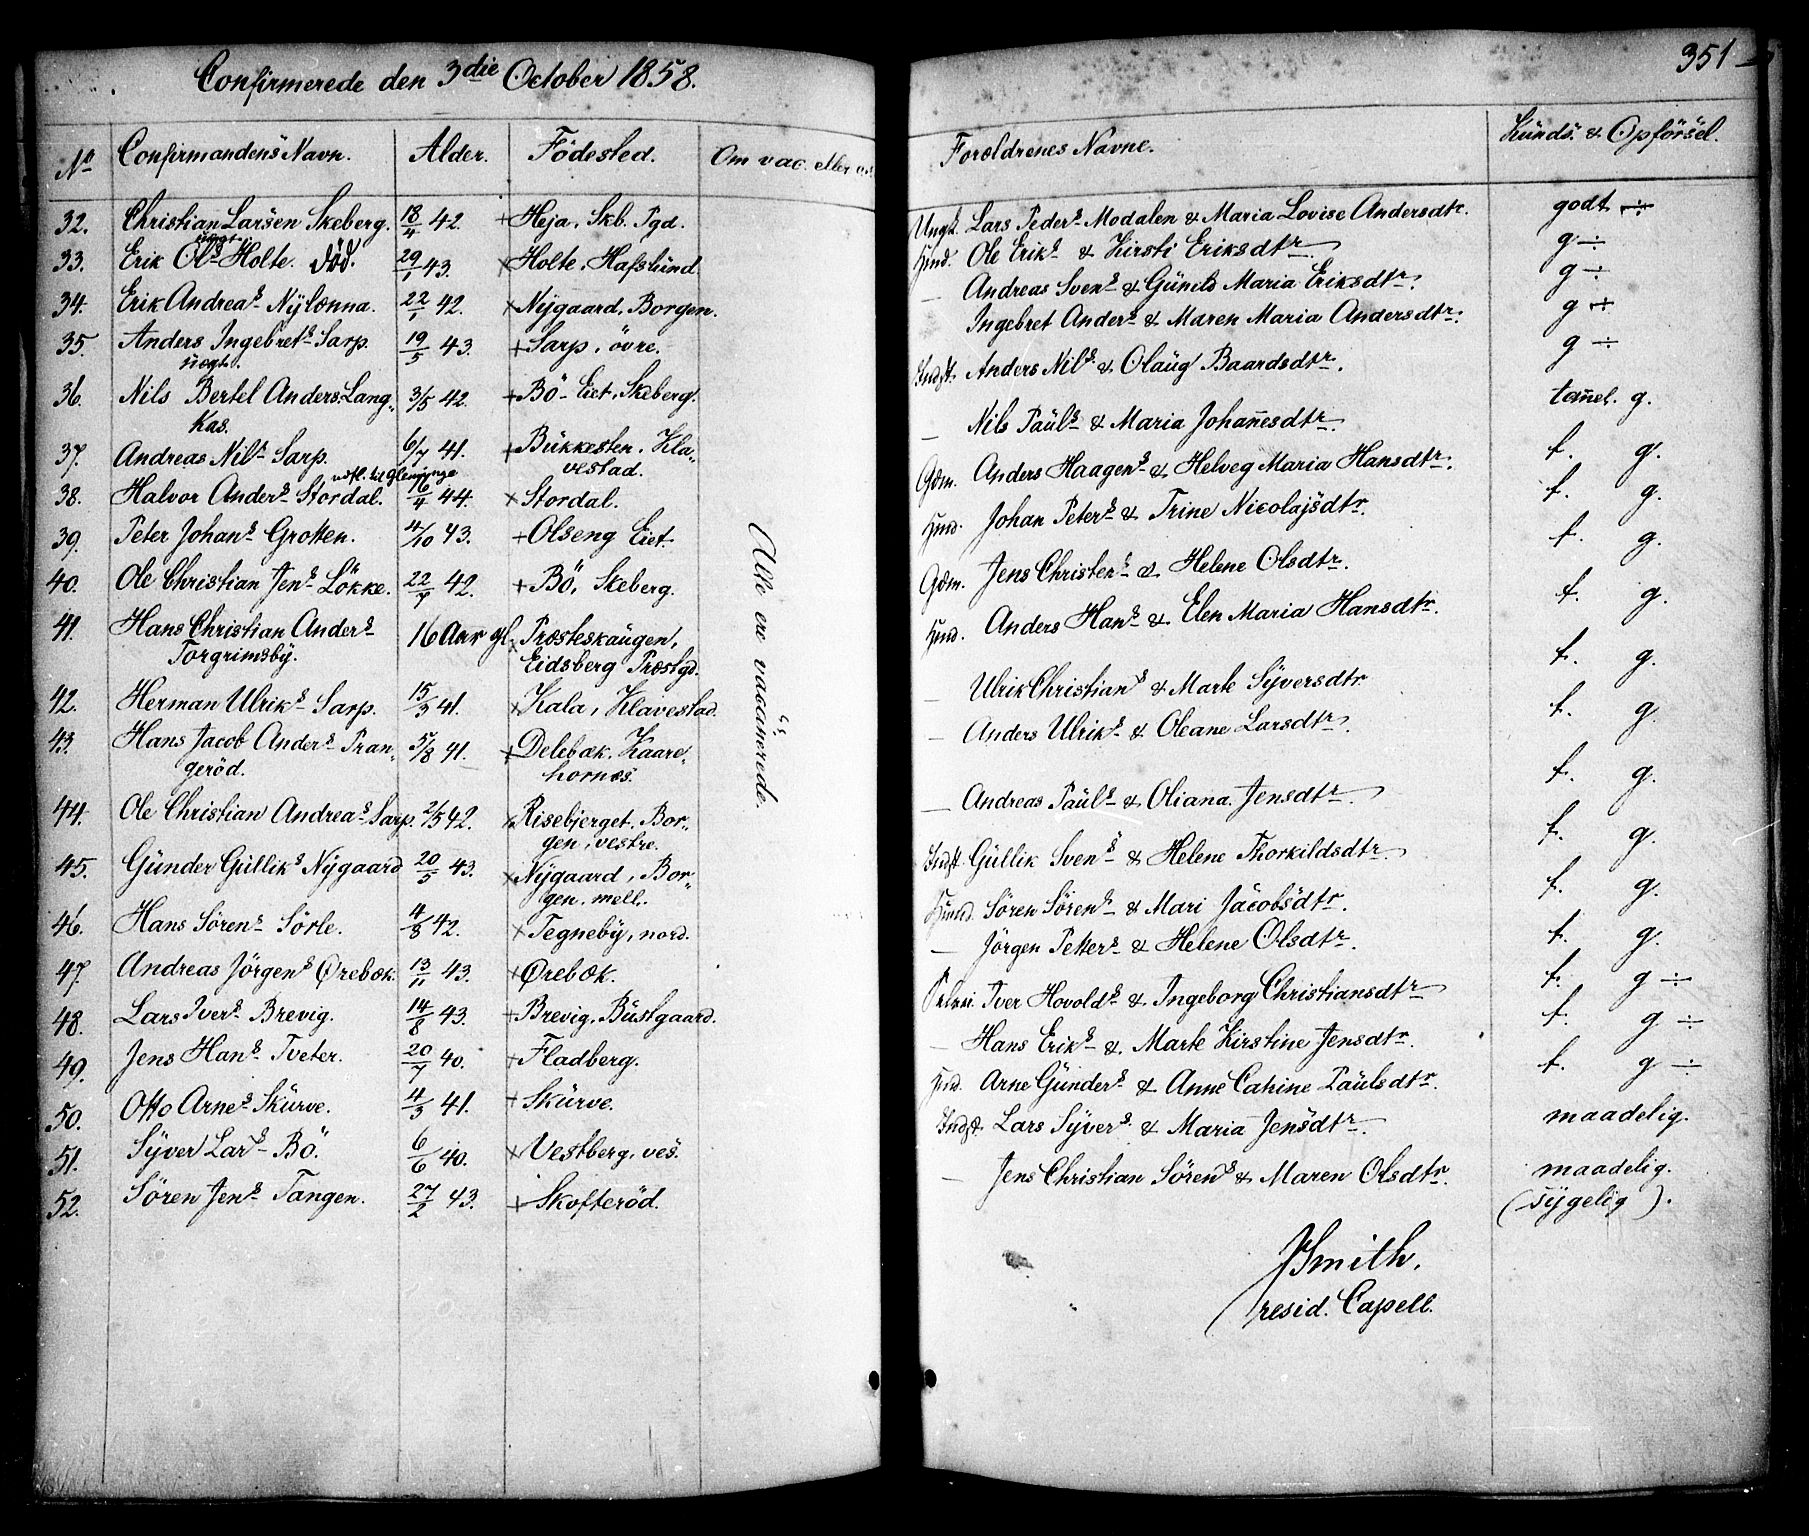 Confirmerede den 3die October 1858.
No Confirmandens Navn. Alder. Födested. Om vac. eller
32. Christian Larsen Skeberg. 18/4 42. + Heja, Skb. Pgd.
33. Erik Ols Holte. död. 29/1 43. × Holte, Hafslund.
34. Erik Andreas Nylænna. 22/1 42. × Nygaard, Borgen.
35. Anders Ingebrets Sarp. 19/5 43. + Sarp, övre.
36. Nils Bertel Anders. Lang-
kas. 3/5 42. + Bö - Eiet, Skeberg.
37. Andreas Nils Sarp. 6/7 41. + Bukkesten, Kla-
vestad.
utfl. til Glemminge
38. Halvor Anders Stordal. 6/4 44. × Stordal.
39. Peter Johans Grotten. 4/10 43. + Olseng Eiet.
40. Ole Christian Jens Lökke. 22/7 42. + Bö, Skeberg.
41. Hans Christian Anders
Torgrimsby. 16 Aar gl. × Præsteskaugen,
Eidsberg Præstgd.
42. Herman Ulriks Sarp. 15/3 41. × Kala, Klavestad.
43. Hans Jacob Anders Pran-
geröd. 5/8 41. + Delebæk, Kaare-
hornæs.
44. Ole Christian Andreas Sarp. 2/5 42. × Risebjerget, Bor-
gen, vestre.
45. Gunder Gulliks Nygaard 20/5 43. × Nygaard, Bor-
gen, mell.
46. Hans Sörens Sörle. 4/8 42. × Tegneby, nord.
47. Andreas Jörgens Ørebæk. 13/11 43. + Ørebæk.
48. Lars Ivers Brevig. 14/8 43. + Brevig, Bustgaard.
49. Jens Hans Tveter. 20/7 40. + Fladberg.
50. Otto Arnes Skurve. 4/3 41. + Skurve.
51. Syver Lars Bö. 6/6 40. × Vestberg, ves.
52. Sören Jens Tangen. 27/2 43. + Skofteröd.
Alle ere vaccinerede.
351
Forældrenes Navne. Kunds. & Opförsel.
Ungk. Lars Peders Modalen & Maria Lovise Andersdtr. godt ÷
Hmd. Ole Eriks & Kirsti Eriksdtr g ÷
— Andreas Svens & Gunild Maria Eriksdtr. g ÷
Ingebret Anders & Maren Maria Andersdtr. g ÷
Indst. Anders Nils & Olaug Baardsdtr. g ÷
— Nils Pauls & Maria Johannesdtr. temmel. g.
Gdm. Anders Haagens & Helveg Maria Hansdtr. t. g.
Hmd. Johan Peters & Trine Nicolajsdtr. t. g.
Gdm. Jens Christens & Helene Olsdtr. t. g.
Hmd. Anders Hans & Elen Maria Hansdtr. t. g.
— Ulrik Christians & Marte Syversdtr. t. g.
— Anders Ulriks & Oleane Larsdtr. t. g.
— Andreas Pauls & Oliana Jensdtr. t. g.
Indst. Gullik Svens & Helene Thorkildsdtr. t. g.
Hmd. Sören Sörens & Mari Jacobsdtr. t. g.
— Jörgen Petters & Helene Olsdtr. t. g.
Iver Hovolds & Ingeborg Christiansdtr t. g ÷
— Hans Eriks & Marte Kirstine Jensdtr. t. g ÷
Hmd. Arne Gunders & Anne Cathine Paulsdtr. t. g ÷
Indst. Lars Syvers & Maria Jensdtr. maadelig.
— Jens Christian Sörens & Maren Olsdtr. maadelig.
(sygelig).
JSmith,
resid. Capell.